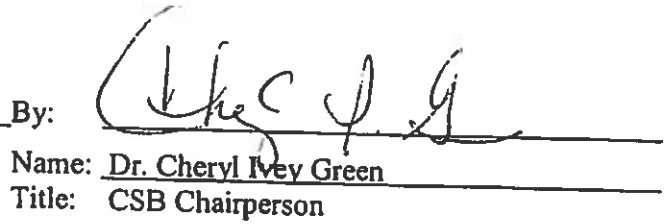 By:
Name: Dr. Cheryl Ivey Green
Title: CSB Chairperson